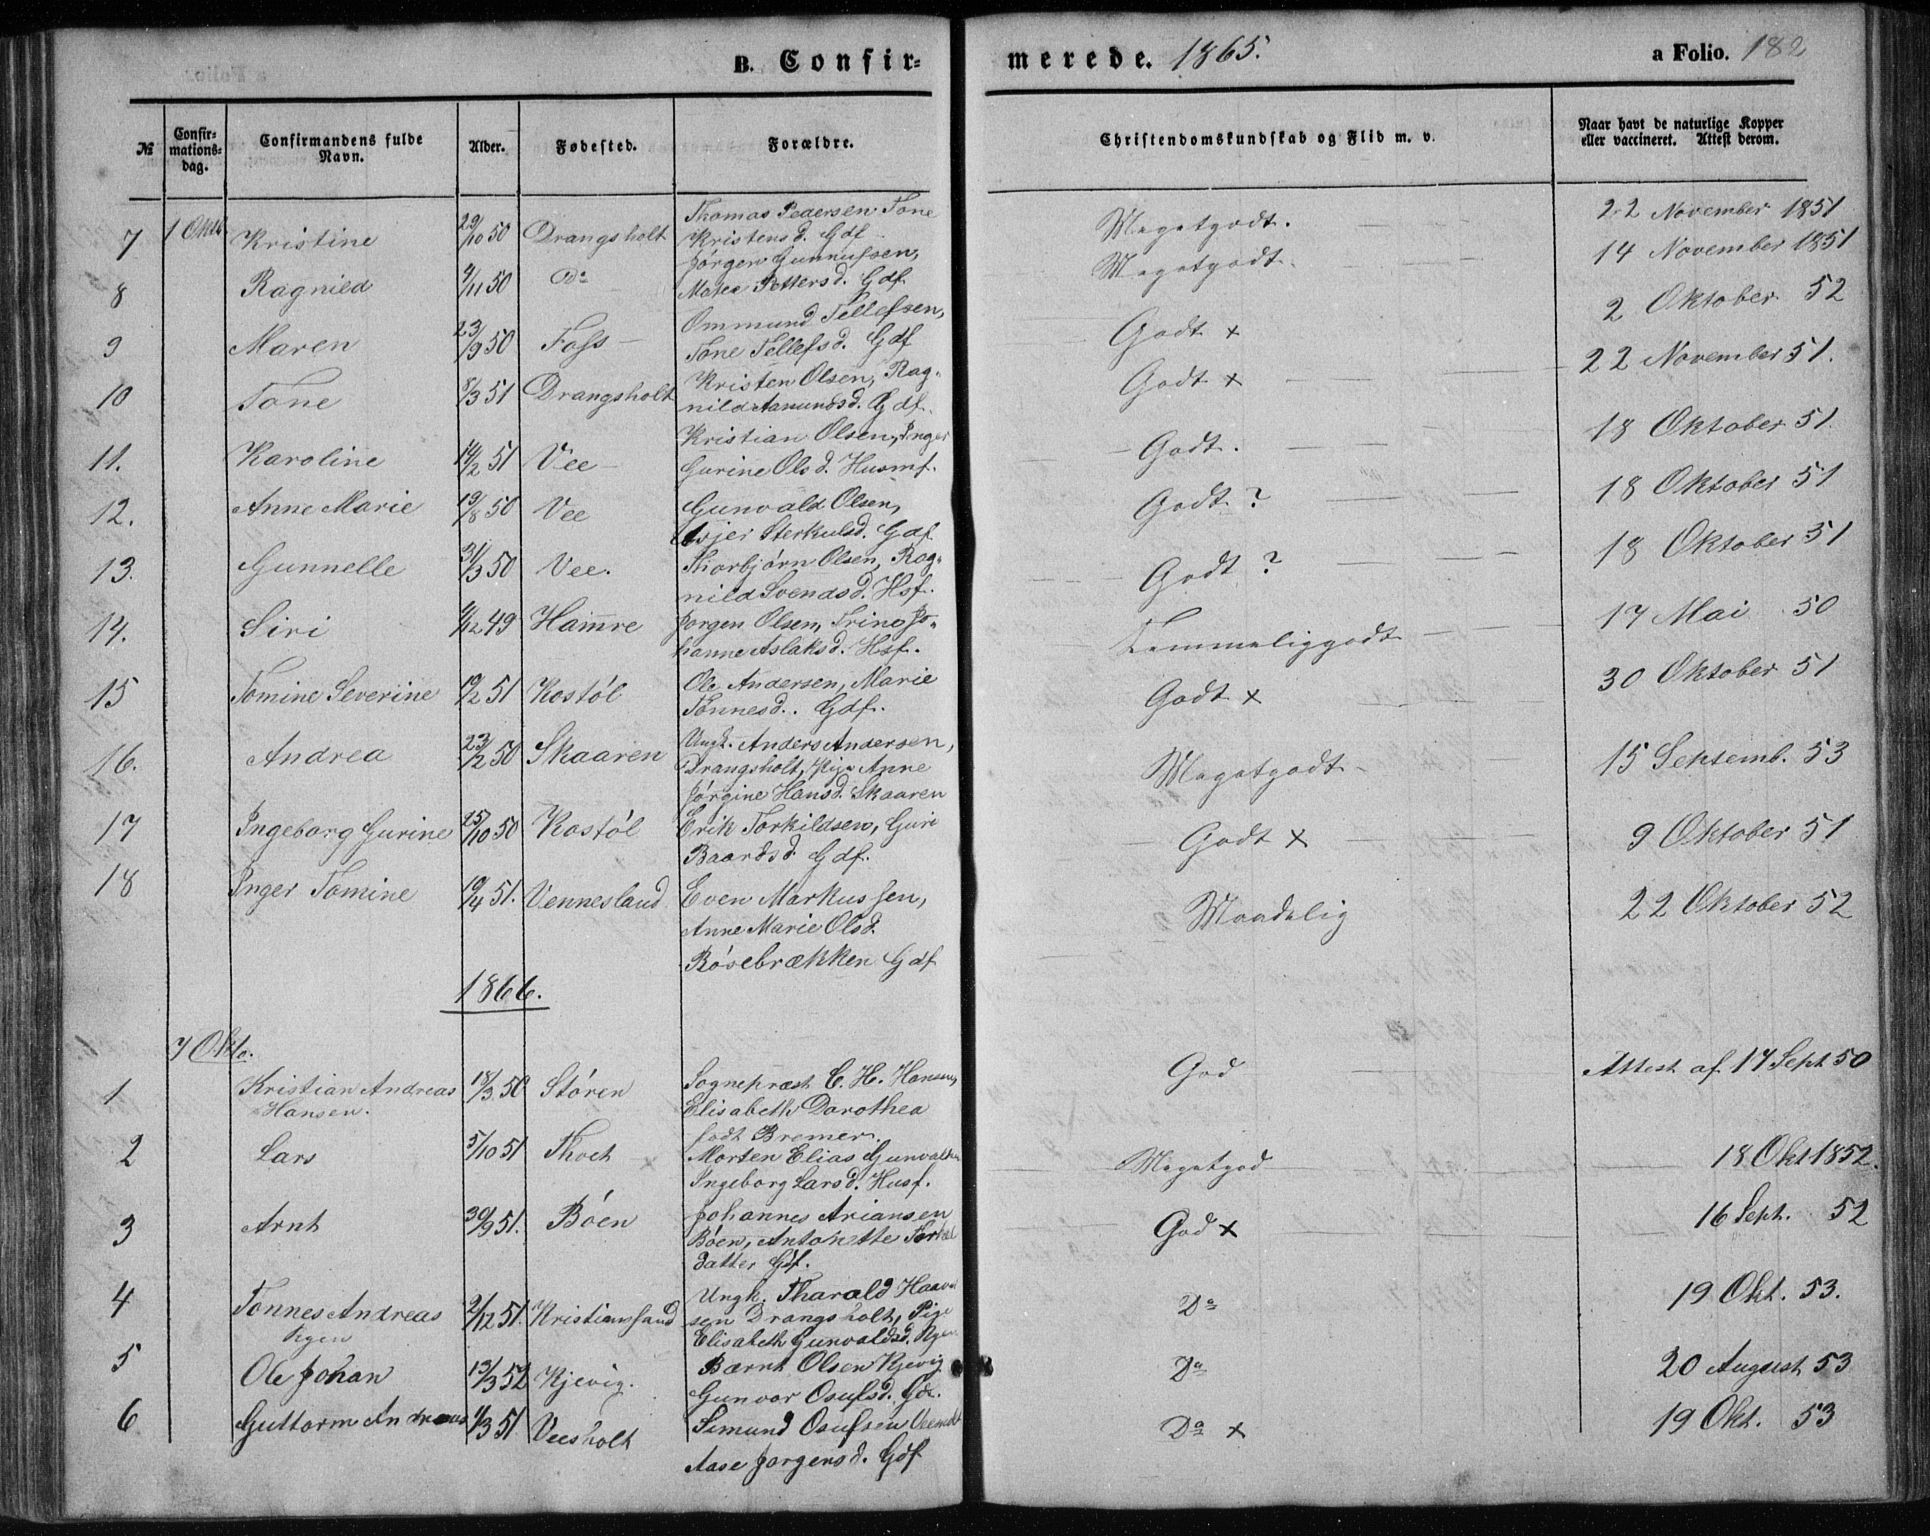 B. Confir-
merede. 1865.
a Folio. 182
№
Confir-
mations-
dag.
Confirmandens fulde
Navn.
Alder.
Fødested.
Forældre.
Christendomskundskab og Flid m. v.
Naar havt de naturlige Kopper
eller vaccineret. Attest derom.
7 1 Oktb. Kristine 29/10 50 Drangsholt Thomas Pedersen Tone
Kristensd. Gdf Megetgodt. 22 November 1851
8 Ragnild 9/11 50 Do Jörgen Gunnufsen,
Matea Pettersd. Gdf Megetgodt. 14 November 1851
9 Maren 23/9 50 Foss Ommund Tellefsen,
Tone Tellefsd. Gdf Godt x 2 Oktober 52
10 Tone 8/3 51 Drangsholt Kristen Olsen, Rag-
nild Aanundsd. Gdf. Godt x 22 November 51.
11. Karoline 14/2 51 Vee Kristian Olsen, Inger
Gurine Olsd. Husmf. Godt. 18 Oktober 51.
12. Anne Marie 19/8 50 Vee Gunvald Olsen,
Sterkulsd. Gdf. Godt ? 18 Oktober 51
13. Gunnelle 31/3 50 Vee. Thorbjörn Olsen, Rag-
nild Svendsd. Hsf. Godt ? 18 Oktober 51
14. Siri 4/12 49 Hamre Jorgen Olsen, Trine Jo-
hanne Aslaksd. Hsf. Temmeliggodt 17 Mai 50
15 Tomine Severine 19/2 51 Kostöl Ole Andersen, Marie
Tönnesd. Gdf. Godt x 30 Oktober 51
16. Andrea 23/2 50 Skaaren Ungk. Anders Andersen,
Drangsholt, Pige Anne
Jörgine Hansd. Skaaren Megetgodt 15 Septemb. 53
17 Ingeborg Gurine 25/10 50 Kostöl Erik Torkildsen, Guri
Baardsd. Gdf. Godt x 9 Oktober 51
18 Inger Tomine 19/4 51. Vennesland Even Markussen,
Anne Marie Olsd.
Rösebrækken Gdf Maadelig 22 Oktober 52
1866.
7 Okto.
1 Kristian Andreas
Hansen. 18/3 50 Stören Sogneprest C. H. Hansen,
Elisabeth Dorothea
födt Bremer. God Attest af 17 Sept 50
2 Lars 5/10 51 Morten Elias Gunvaldsen
Ingeborg Larsd. Husf. Megetgod 18 Okt 1852.
3 Arnt 30/9 51. Böen Johannes Ariansen
Böen, Antonette Torkel
datter Gdf. God x 16 Sept. 52
4 Tönnes Andreas 2/12 51. Kristianssand Ungk. Tharald Haav
sen Drangsholt, Pige
Elisabeth Gunvaldsd. Do 19 Okt. 53.
5 Ole Johan 13/3 52 Kjevig. Bærnt Olsen Kjevig
Gunvor Osufsd. Gdf. Do 20 August 53
6 Guttorm Andreas 1/3 51 Veesholt Simund Osufsen
Aase Jorgensd. Gdf Do x 19 Okt. 53